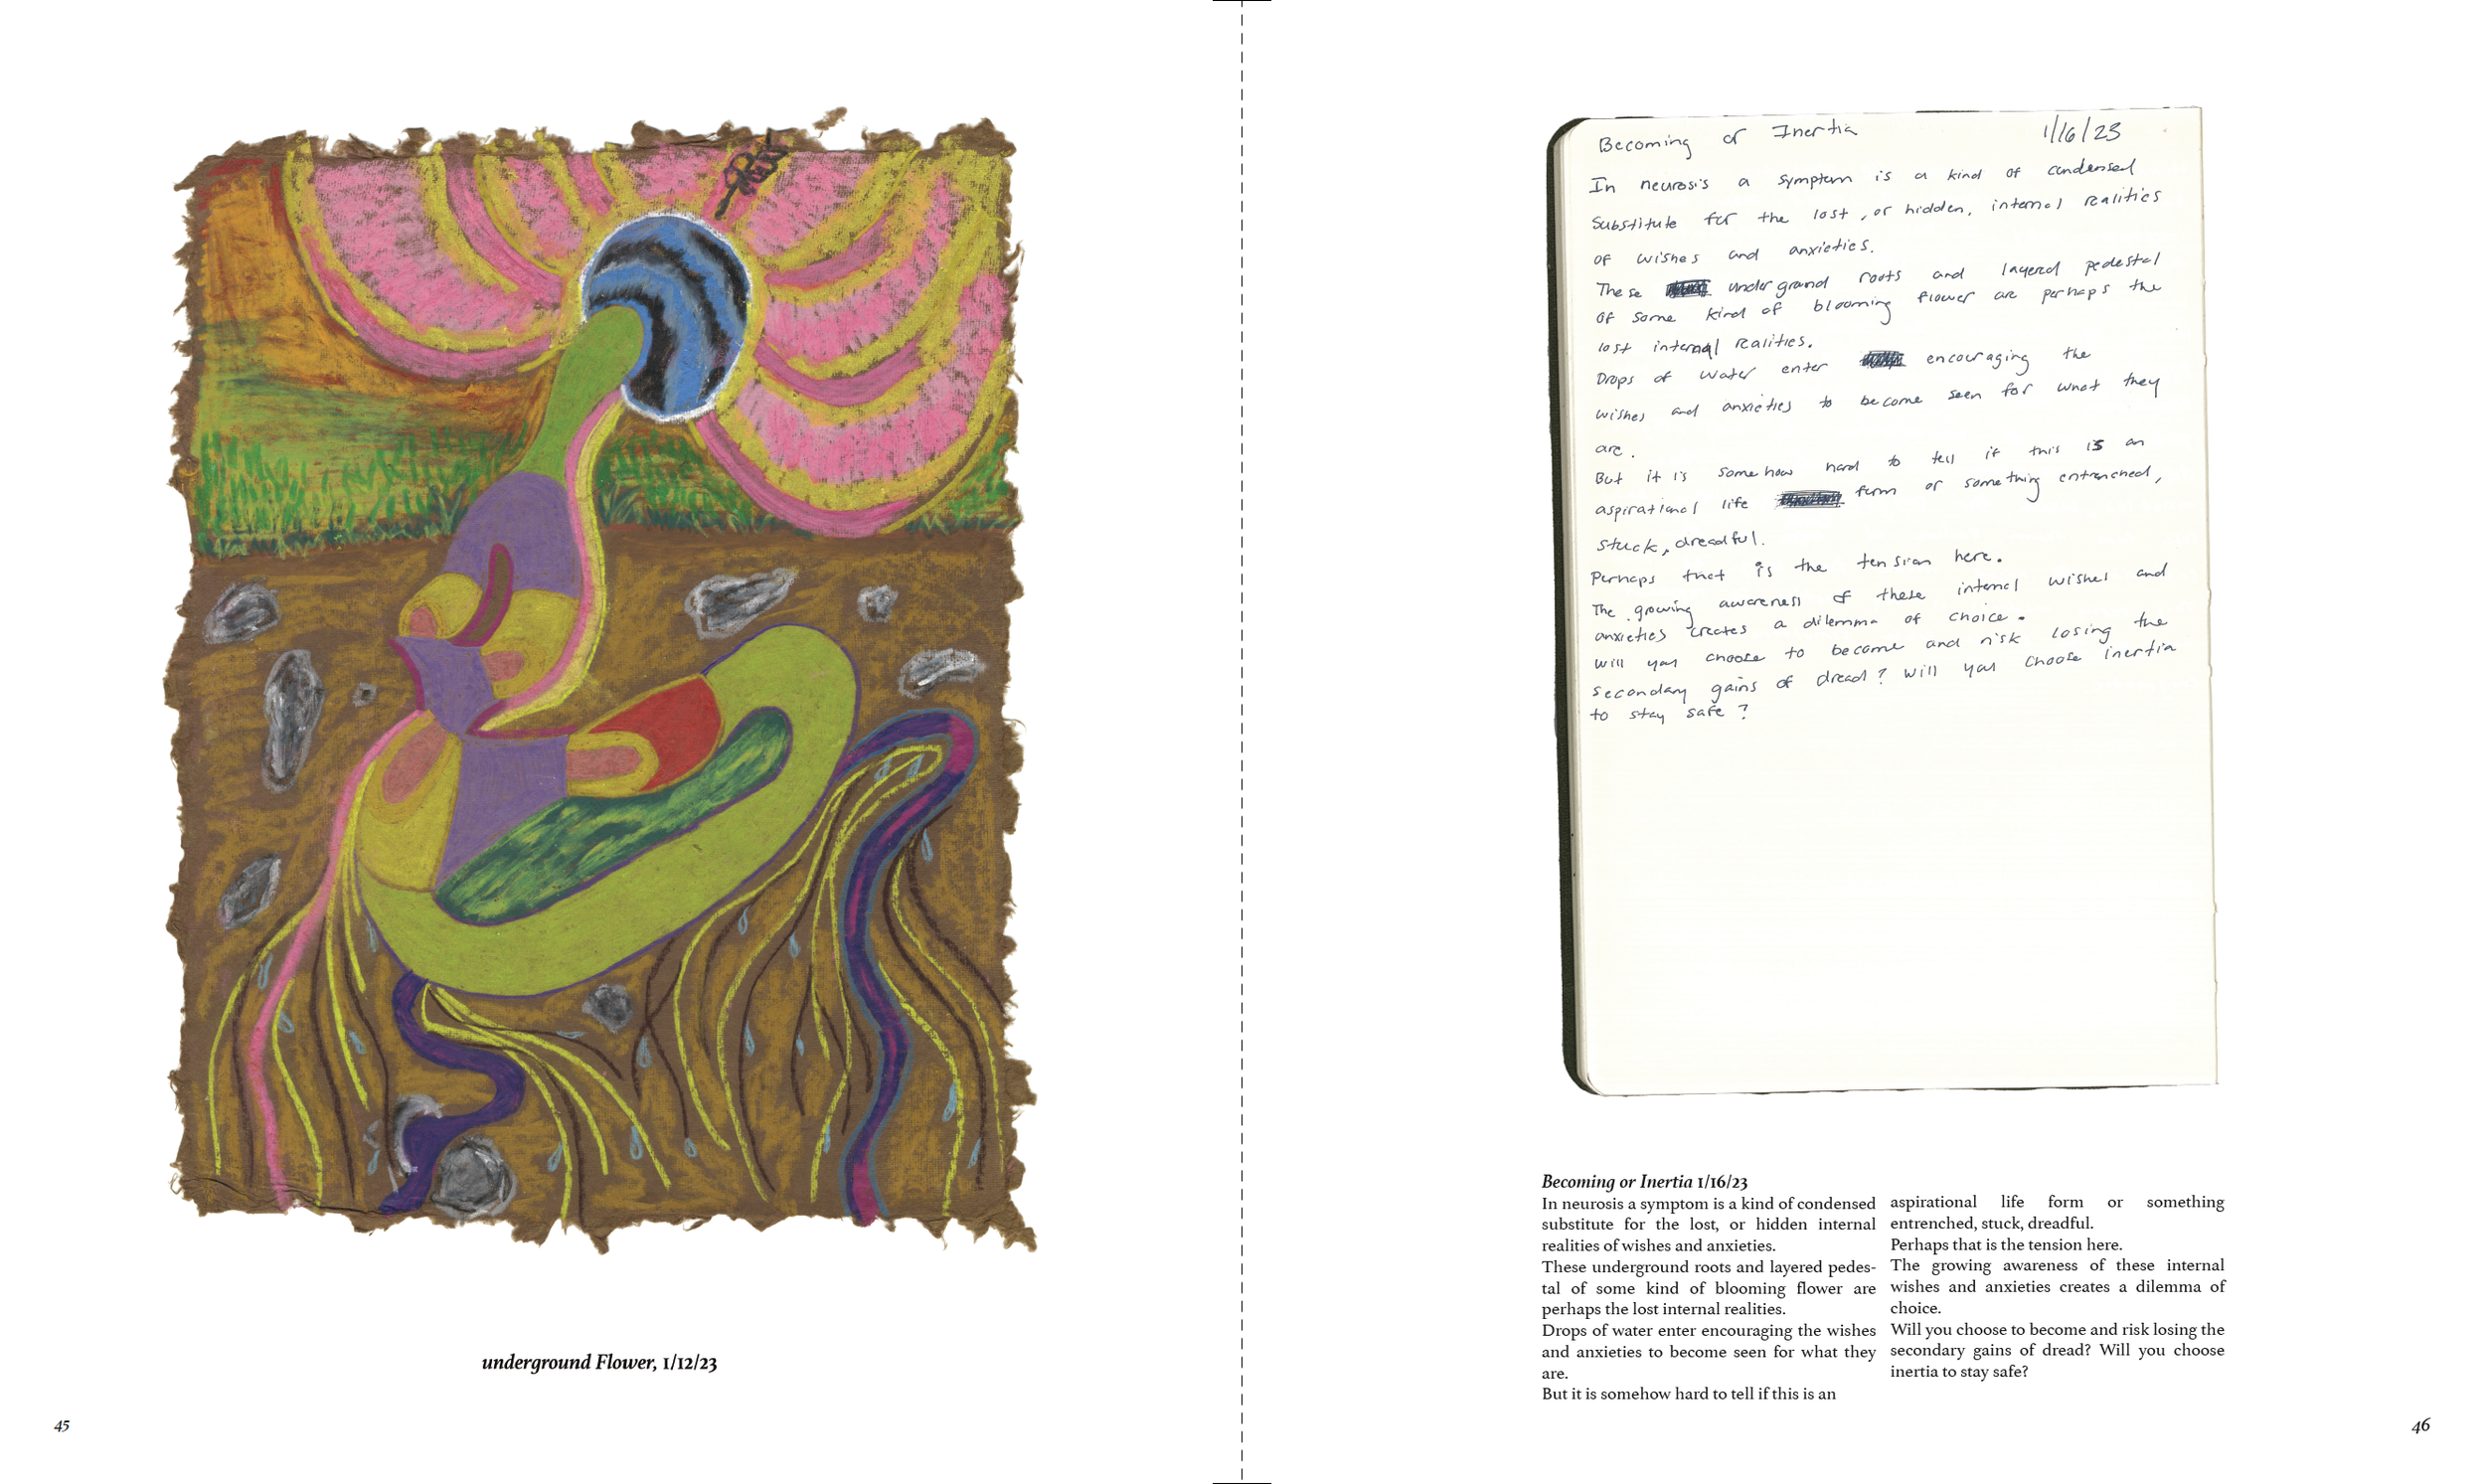 underground Flower, 1/12/23
45
Becoming or Inertia 1/16/23
In neurosis a symptom is a kind of condensed
substitute for the lost, or hidden, internal realities
of wishes and anxieties.
These underground roots and layered pedestal
of some kind of blooming flower are perhaps the
lost internal realities.
Drops of water enter encouraging the
wishes and anxieties to become seen for what they
are.
But it is somehow hard to tell if this is an
aspirational life form or something entrenched,
stuck, dreadful.
Perhaps that is the tension here.
The growing awareness of these internal wishes and
anxieties creates a dilemma of choice.
will you choose to become and risk losing the
secondary gains of dread? Will you choose inertia
to stay safe?
Becoming or Inertia 1/16/23
In neurosis a symptom is a kind of condensed
substitute for the lost, or hidden internal
realities of wishes and anxieties.
These underground roots and layered pedes-
tal of some kind of blooming flower are
perhaps the lost internal realities.
Drops of water enter encouraging the wishes
and anxieties to become seen for what they
are.
But it is somehow hard to tell if this is an
aspirational life form or something
entrenched, stuck, dreadful.
Perhaps that is the tension here.
The growing awareness of these internal
wishes and anxieties creates a dilemma of
choice.
Will you choose to become and risk losing the
secondary gains of dread? Will you choose
inertia to stay safe?
46